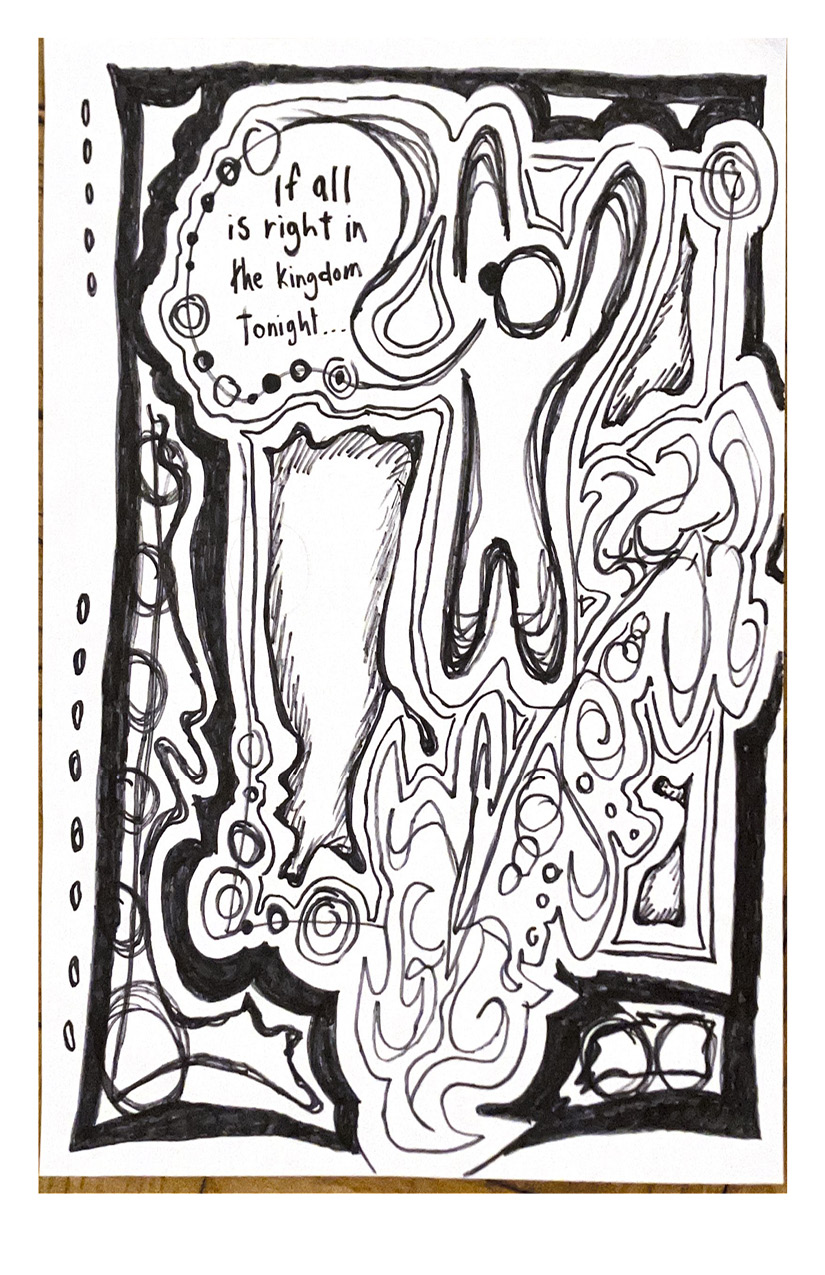 If all
is right in
the kingdom
Tonight...